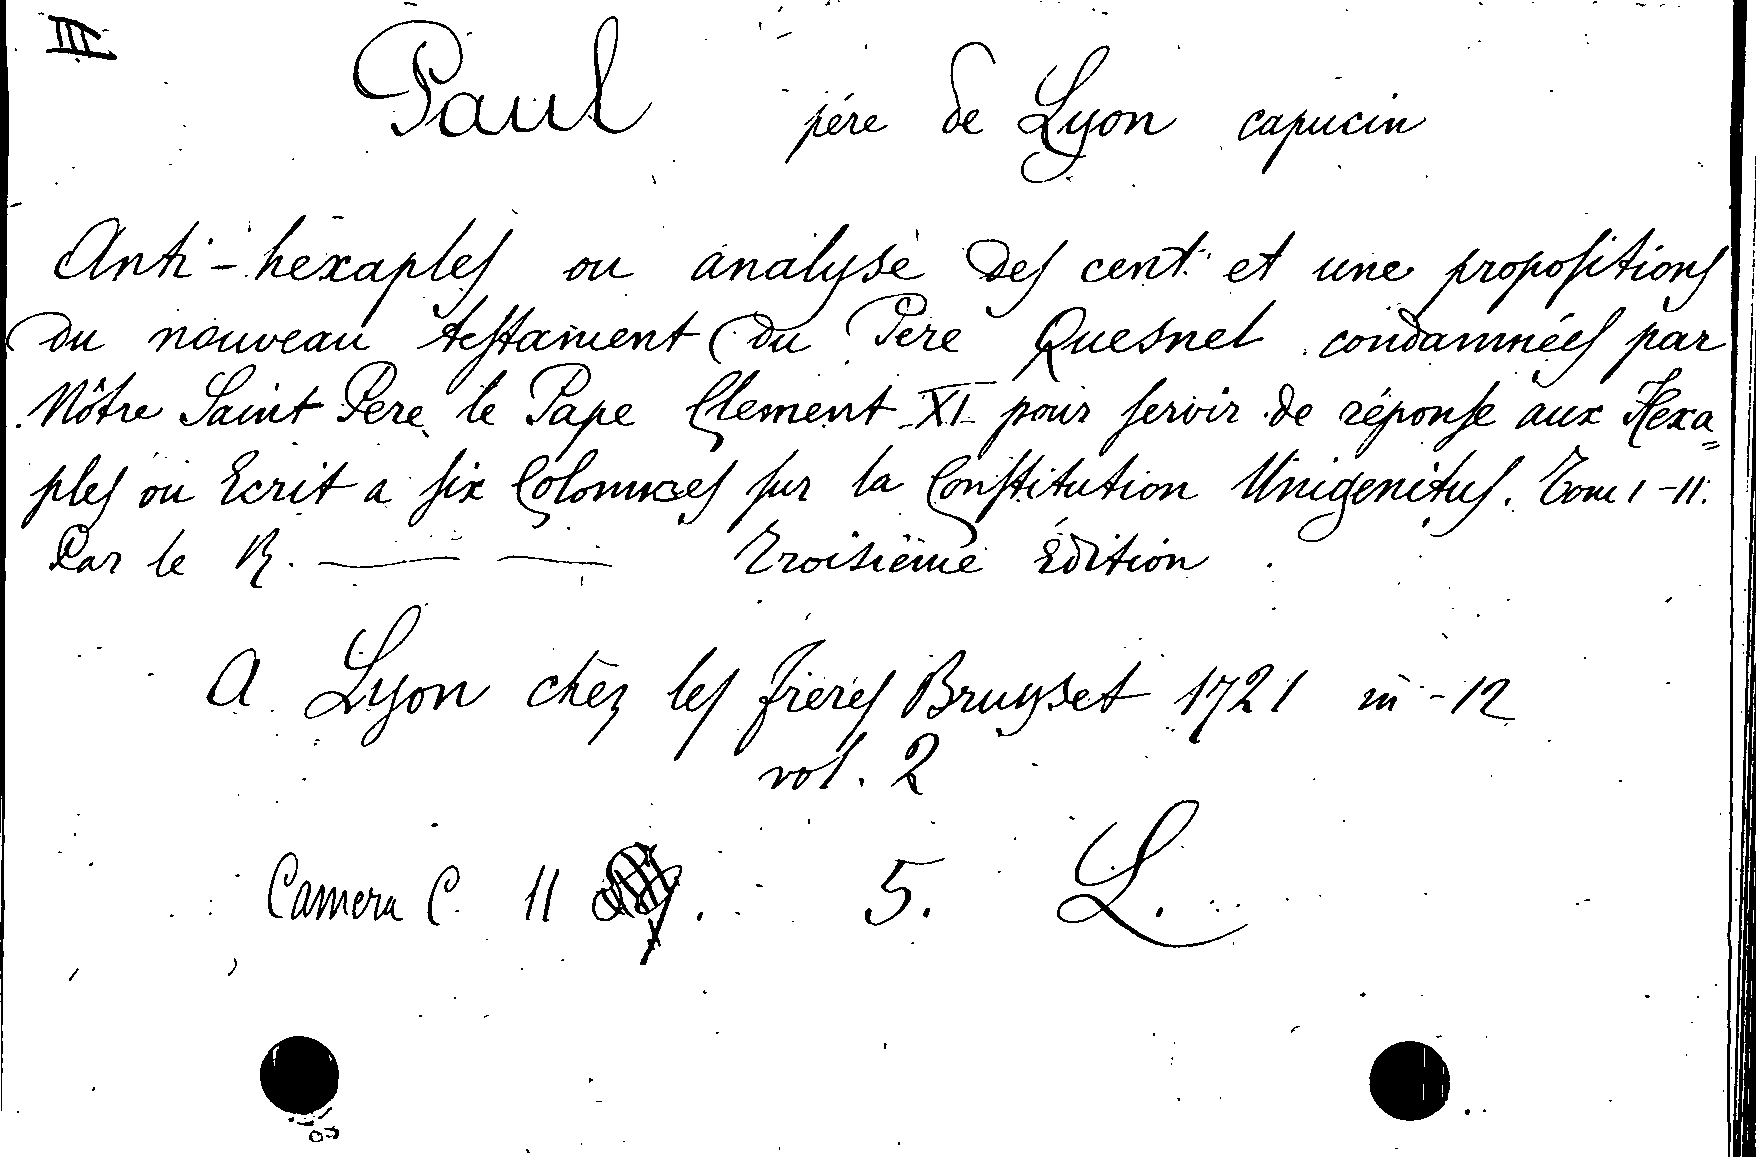 III
Paul père de Lyon capucin
Anti-hexaples ou analyse des cent et une propositions
du nouveau testament du Pere Quesnel condamnées par
Nôtre Saint Pere le Pape Clement XI pour servir de réponse aux Hexa=
ples ou Ecrit a six Colomnes sur la Constitution Unigenitus. Tom 1-11.
Par le R. — — Troisième édition
A Lyon chez les frères Bruyset 1721 in-12
vol. 2
Camera C. 11 . 5. L.